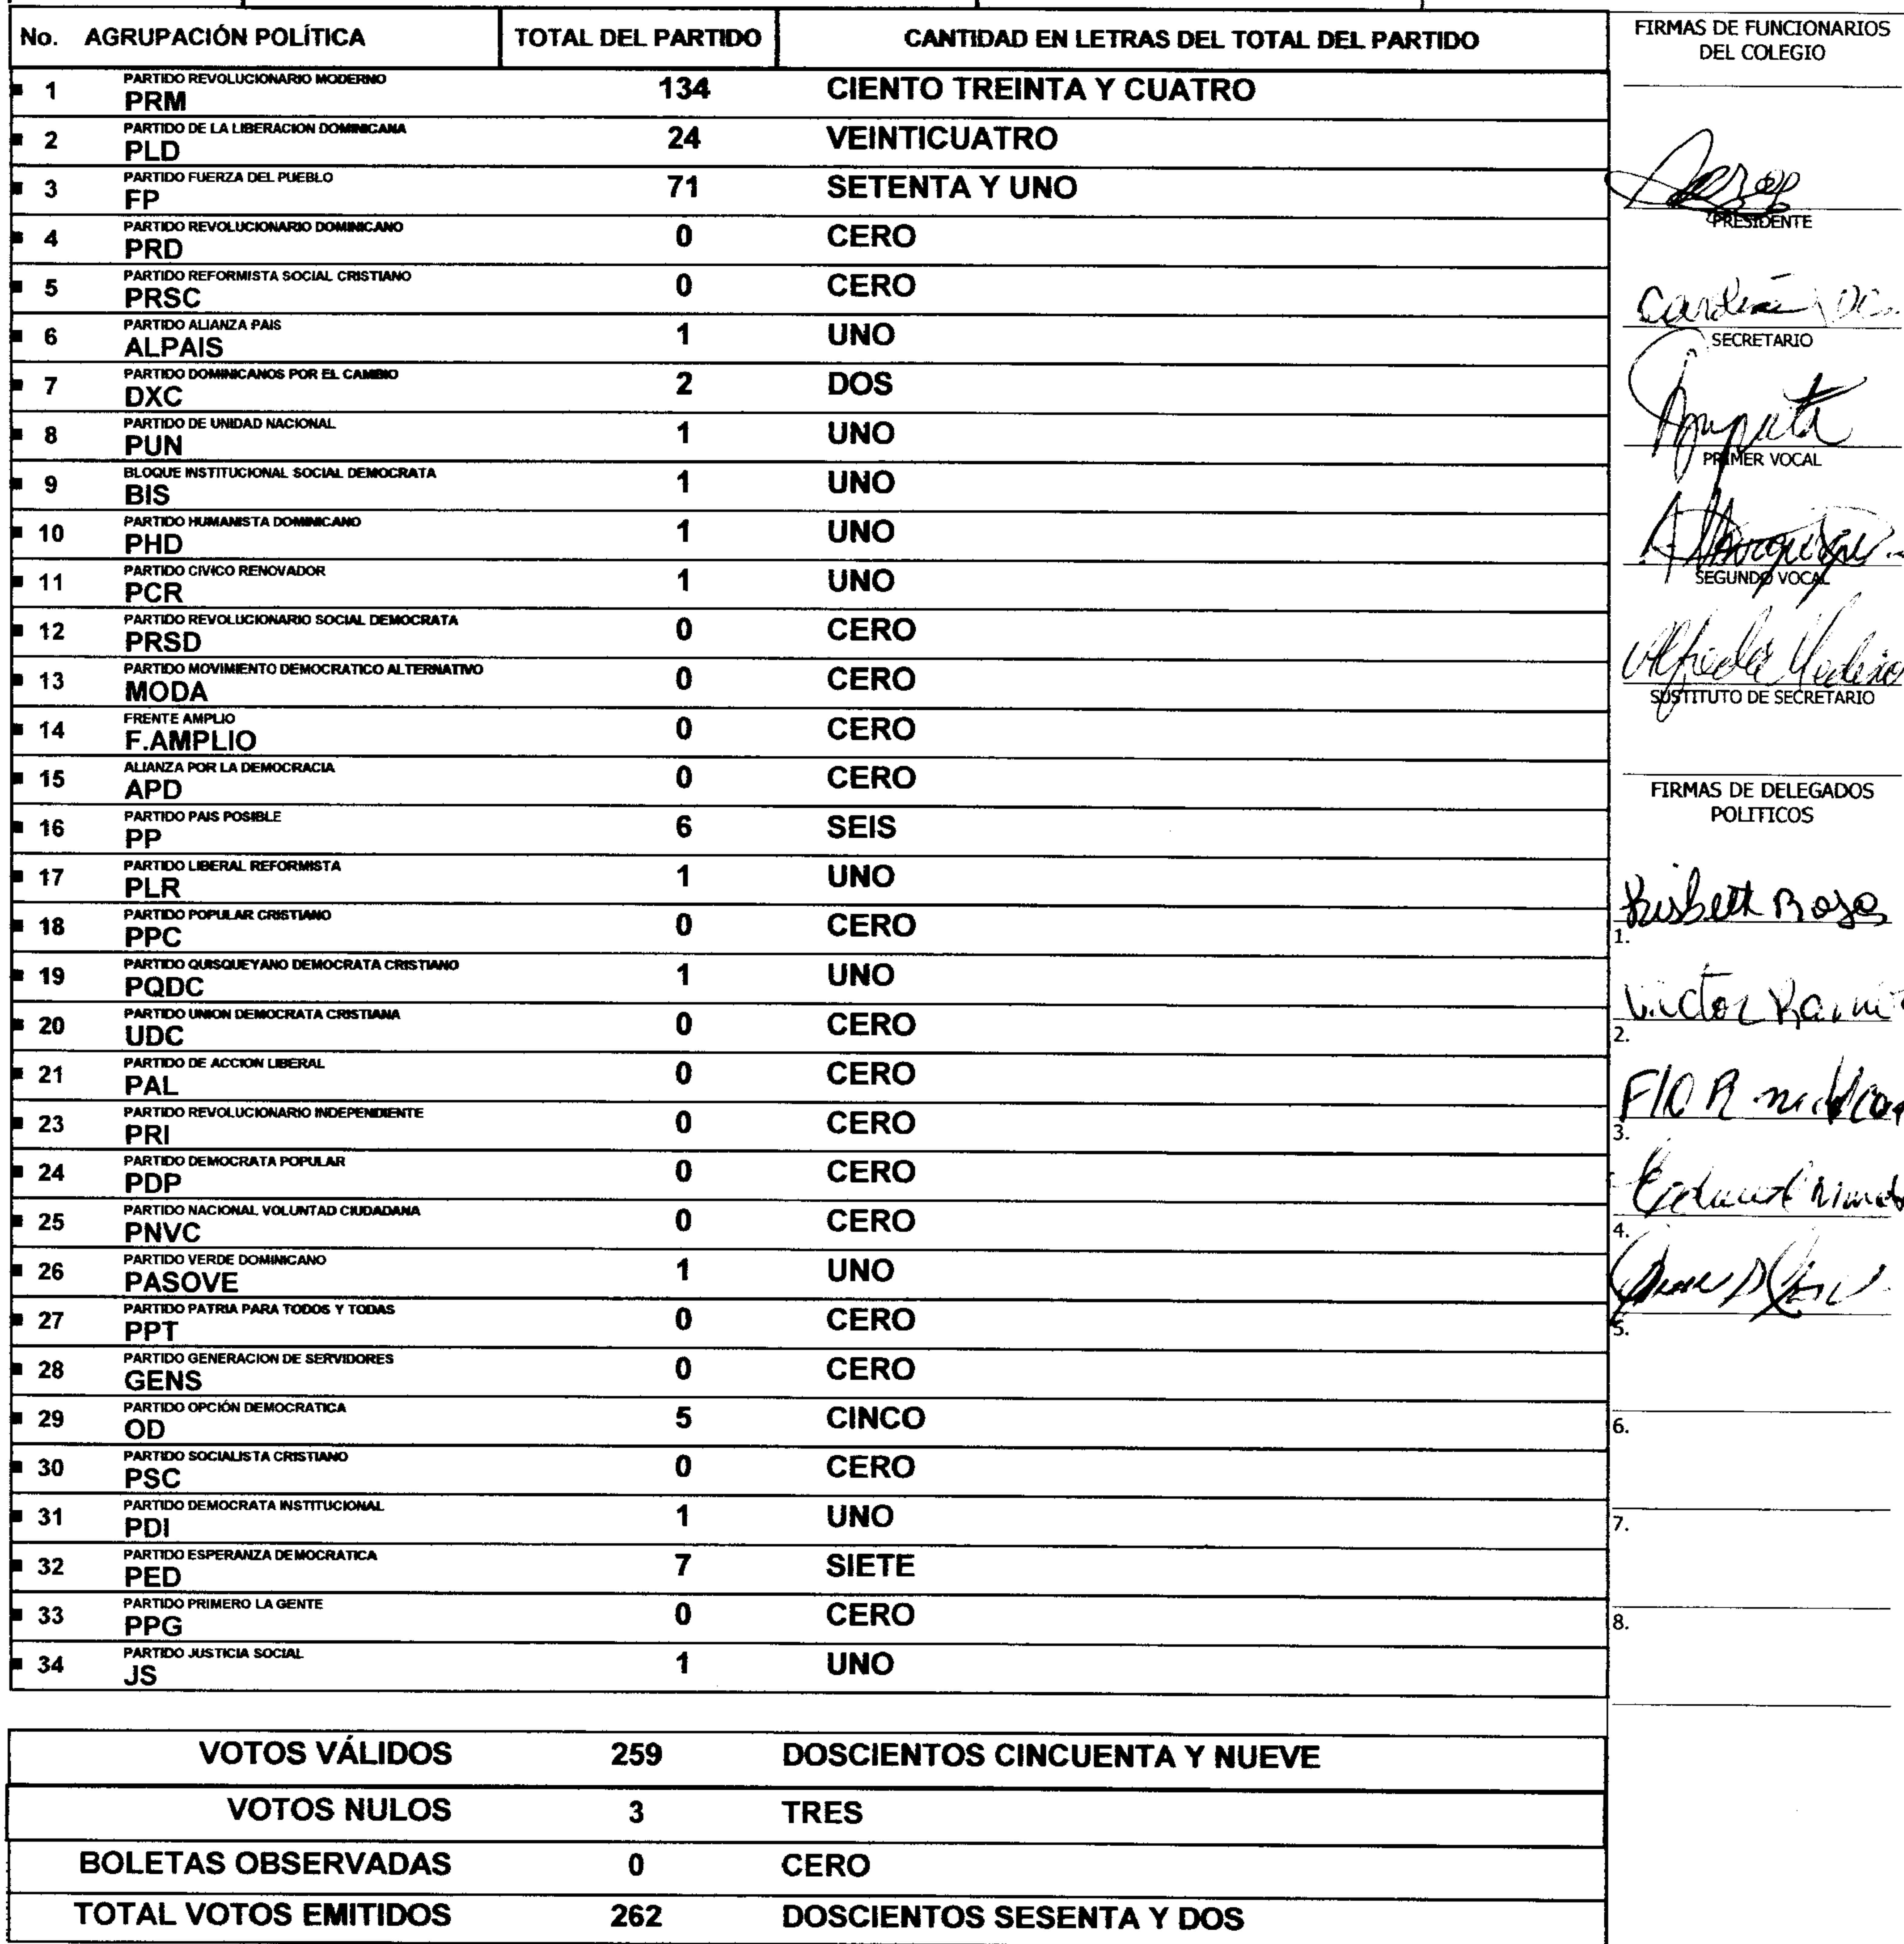 No. AGRUPACIÓN POLÍTICA TOTAL DEL PARTIDO CANTIDAD EN LETRAS DEL TOTAL DEL PARTIDO
PARTIDO REVOLUCIONARIO MODERNO
1 PRM 134 CIENTO TREINTA Y CUATRO
PARTIDO DE LA LIBERACION DOMINICANA
2 PLD 24 VEINTICUATRO
PARTIDO FUERZA DEL PUEBLO
3 FP 71 SETENTA Y UNO
PARTIDO REVOLUCIONARIO DOMINICANO
4 PRD 0 CERO
PARTIDO REFORMISTA SOCIAL CRISTIANO
5 PRSC 0 CERO
PARTIDO ALIANZA PAIS
6 ALPAIS 1 UNO
PARTIDO DOMINICANOS POR EL CAMBIO
7 DXC 2 DOS
PARTIDO DE UNIDAD NACIONAL
8 PUN 1 UNO
BLOQUE INSTITUCIONAL SOCIAL DEMOCRATA
9 BIS 1 UNO
PARTIDO HUMANISTA DOMINICANO
10 PHD 1 UNO
PARTIDO CIVICO RENOVADOR
11 PCR 1 UNO
PARTIDO REVOLUCIONARIO SOCIAL DEMOCRATA
12 PRSD 0 CERO
PARTIDO MOVIMIENTO DEMOCRATICO ALTERNATIVO
13 MODA 0 CERO
FRENTE AMPLIO
14 F.AMPLIO 0 CERO
ALIANZA POR LA DEMOCRACIA
15 APD 0 CERO
PARTIDO PAIS POSIBLE
16 PP 6 SEIS
PARTIDO LIBERAL REFORMISTA
17 PLR 1 UNO
PARTIDO POPULAR CRISTIANO
18 PPC 0 CERO
PARTIDO QUISQUEYANO DEMOCRATA CRISTIANO
19 PQDC 1 UNO
PARTIDO UNION DEMOCRATA CRISTIANA
20 UDC 0 CERO
PARTIDO DE ACCION LIBERAL
21 PAL 0 CERO
PARTIDO REVOLUCIONARIO INDEPENDIENTE
23 PRI 0 CERO
PARTIDO DEMOCRATA POPULAR
24 PDP 0 CERO
PARTIDO NACIONAL VOLUNTAD CIUDADANA
25 PNVC 0 CERO
PARTIDO VERDE DOMINICANO
26 PASOVE 1 UNO
PARTIDO PATRIA PARA TODOS Y TODAS
27 PPT 0 CERO
PARTIDO GENERACION DE SERVIDORES
28 GENS 0 CERO
PARTIDO OPCIÓN DEMOCRATICA
29 OD 5 CINCO
PARTIDO SOCIALISTA CRISTIANO
30 PSC 0 CERO
PARTIDO DEMOCRATA INSTITUCIONAL
31 PDI 1 UNO
PARTIDO ESPERANZA DEMOCRATICA
32 PED 7 SIETE
PARTIDO PRIMERO LA GENTE
33 PPG 0 CERO
PARTIDO JUSTICIA SOCIAL
34 JS 1 UNO
VOTOS VÁLIDOS 259 DOSCIENTOS CINCUENTA Y NUEVE
VOTOS NULOS 3 TRES
BOLETAS OBSERVADAS 0 CERO
TOTAL VOTOS EMITIDOS 262 DOSCIENTOS SESENTA Y DOS
FIRMAS DE FUNCIONARIOS
DEL COLEGIO
PRESIDENTE
SECRETARIO
PRIMER VOCAL
SEGUNDO VOCAL
SUSTITUTO DE SECRETARIO
FIRMAS DE DELEGADOS
POLITICOS
1.
2. Victor
3.
4.
5.
6.
7.
8.